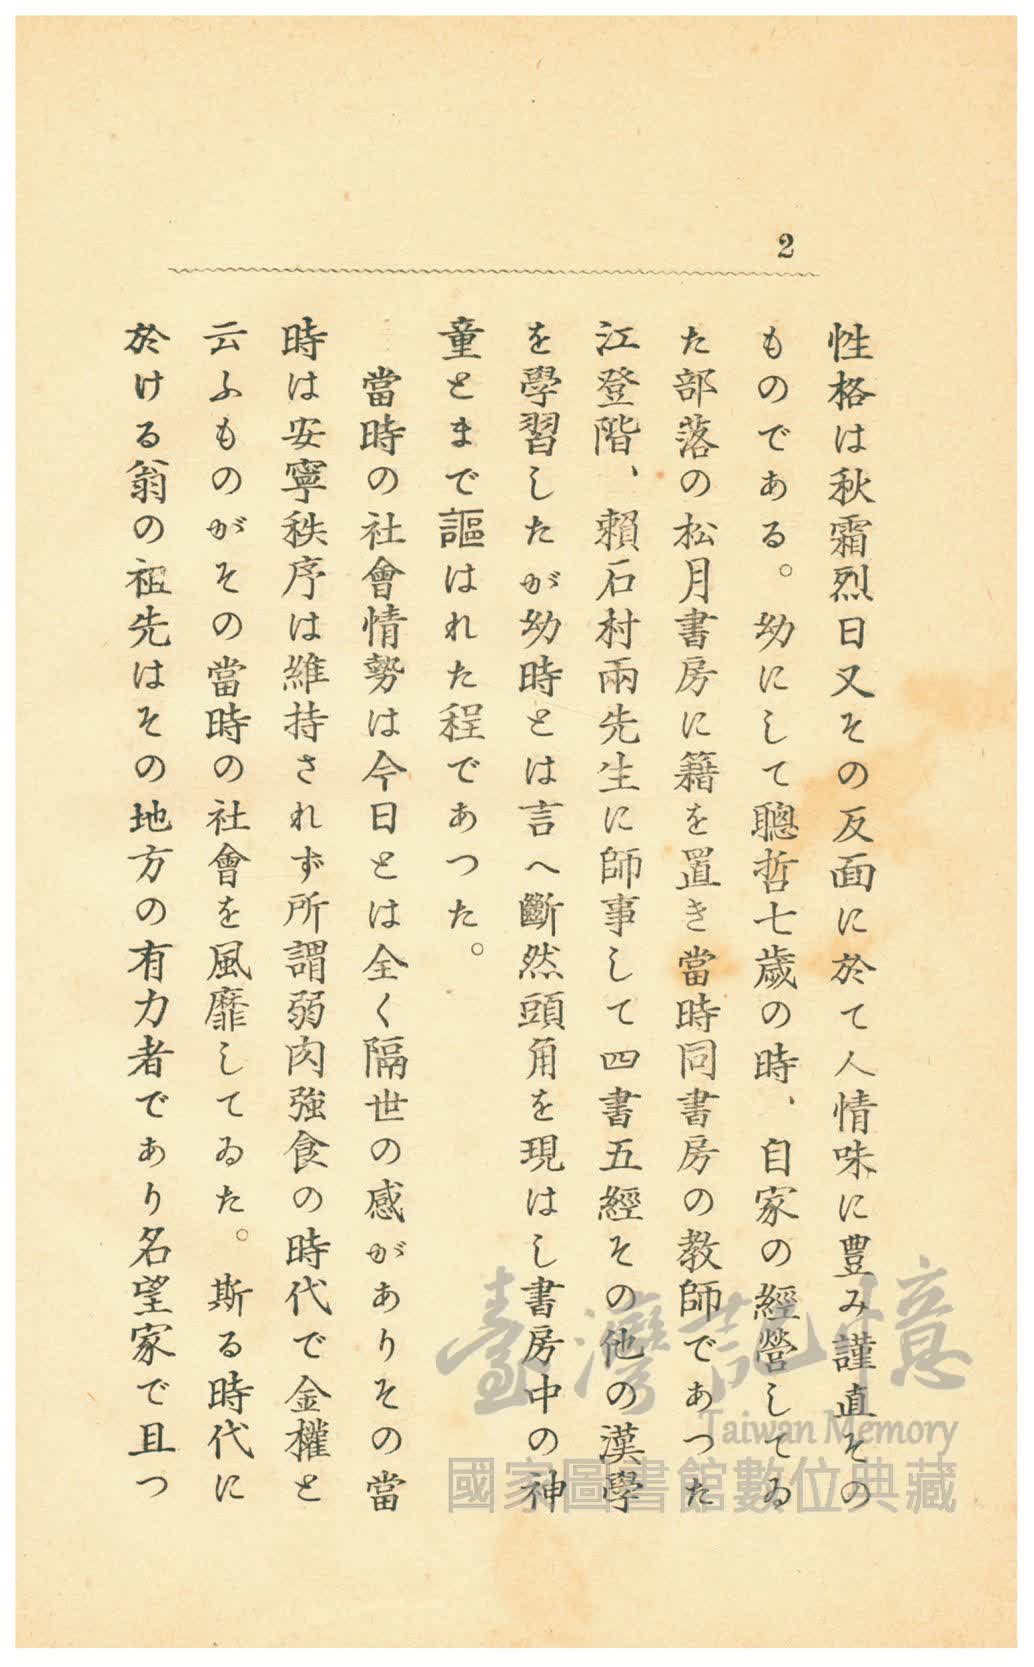 2
性格は秋霜烈日又その反面に於て人情味に豊み謹直その
ものである。幼にして聰哲七歳の時、自家の經營してゐ
た部落の松月書房に籍を置き當時同書房の教師であつた
江登階、賴石村兩先生に師事して四書五經その他の漢學
を學習したが幼時とは言へ斷然頭角を現はし書房中の神
童とまで謳はれた程であつた。
當時の社會情勢は今日とは全く隔世の感がありその當
時は安寧秩序は維持されず所謂弱肉強食の時代で金權と
云ふものがその當時の社會を風靡してゐた。斯る時代に
於ける翁の祖先はその地方の有力者であり名望家で且つ
臺灣記憶
Taiwan Memory
國家圖書館數位典藏